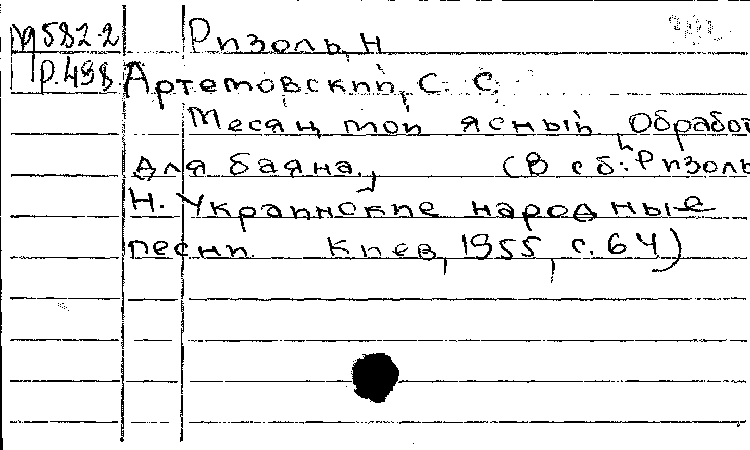 М582-2 Ризоль, Н
Р.498 Артемовский, С. С.
Месяц мой ясный, Обработ
для баяна. (В сб: Ризоль
Н. Украинские народные
песни. Киев, 1955, с. 64)